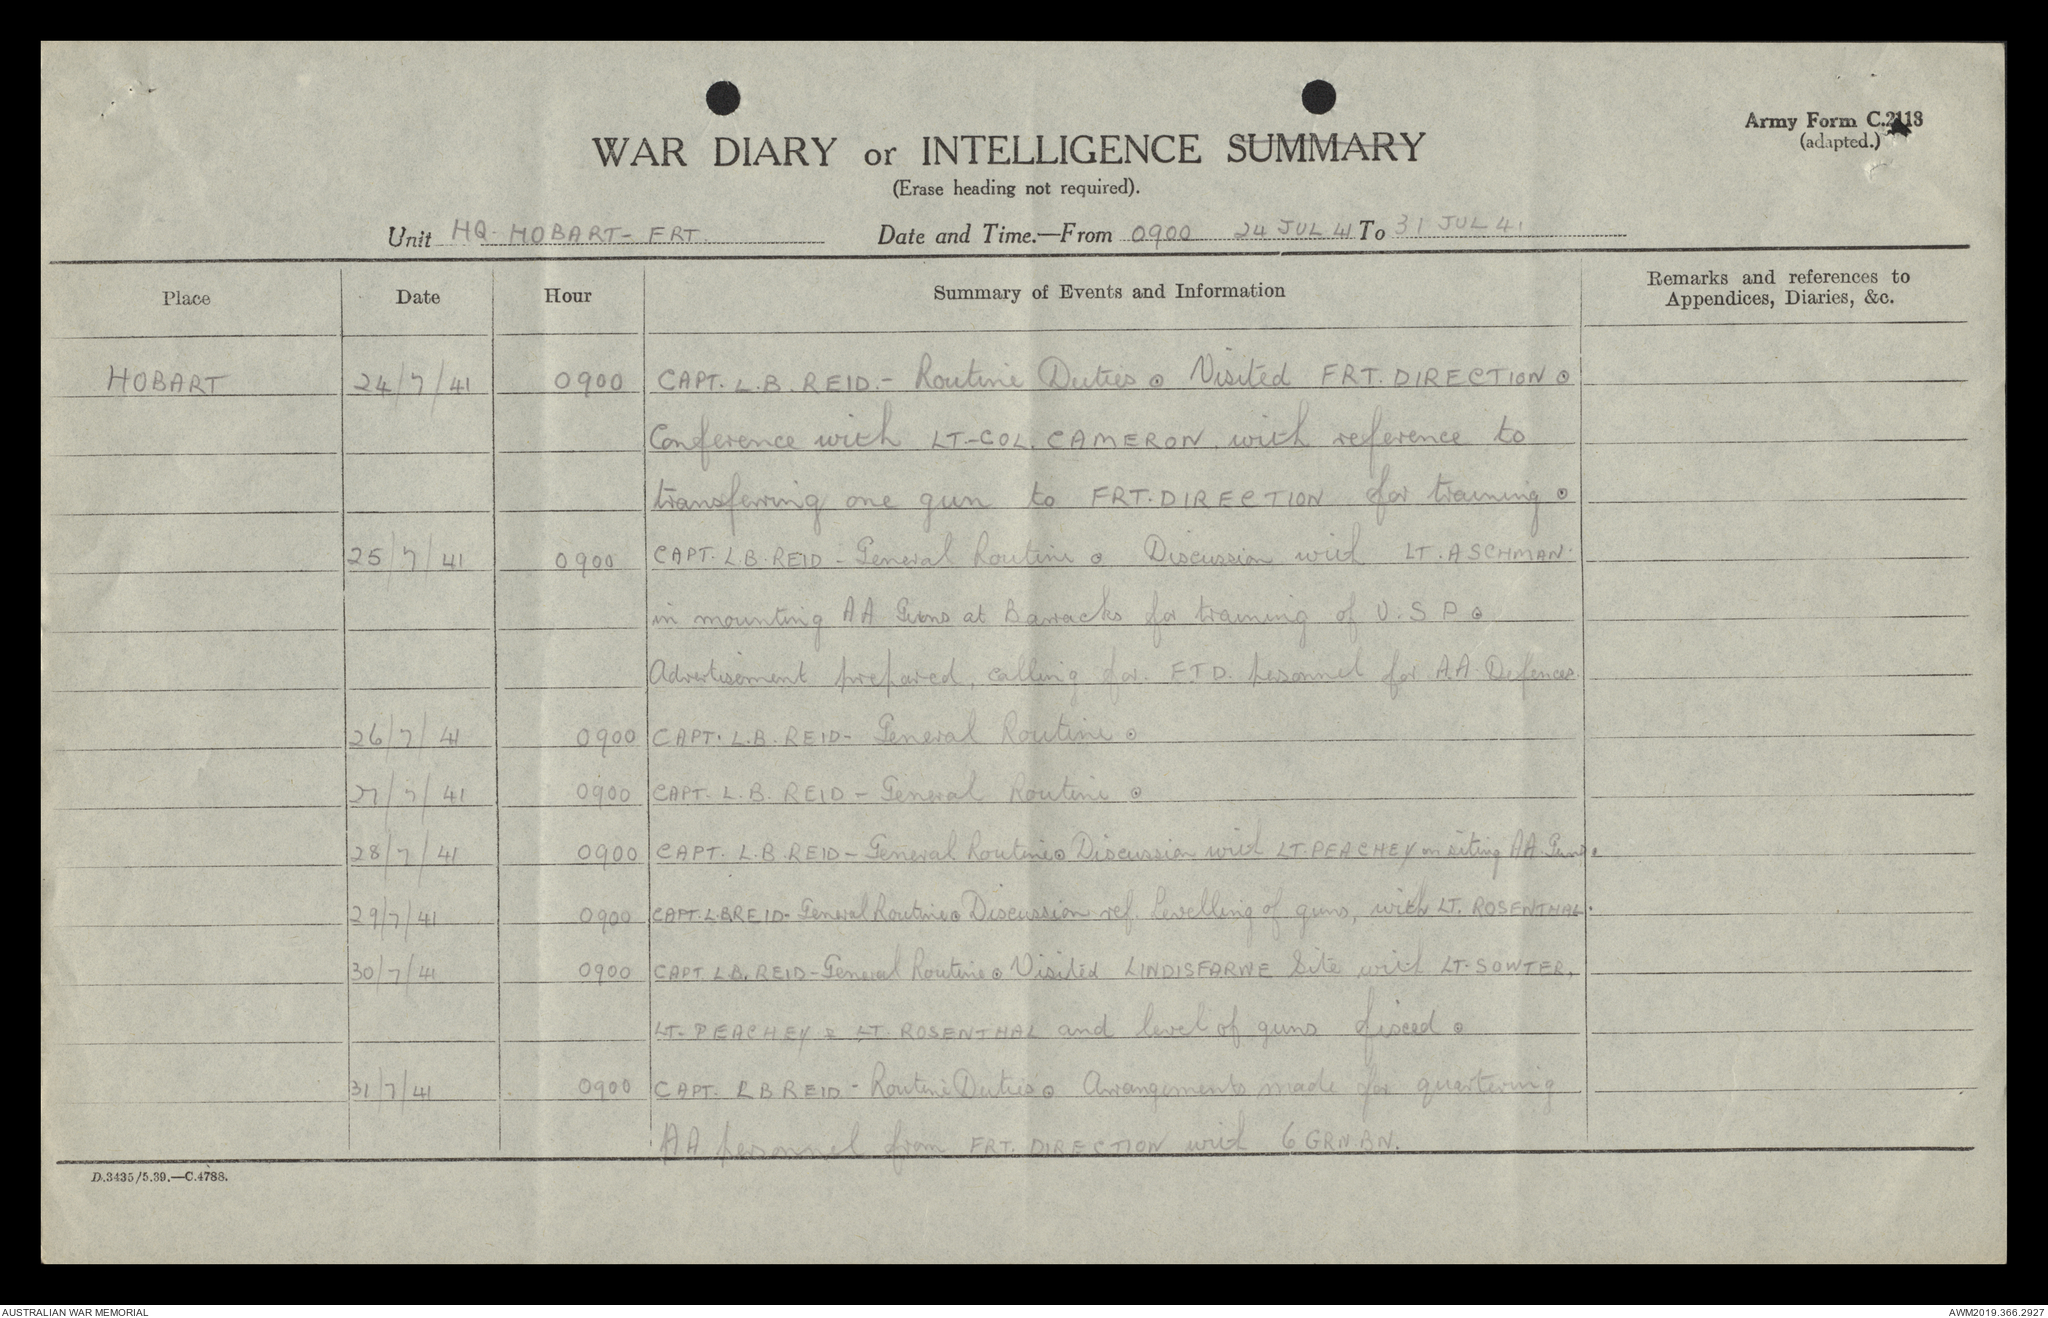 Army Form C.2118
(adapted.)
WAR DIARY or INTELLIGENCE SUMMARY
(Erase heading not required).
Unit HQ. HOBART- FRT. Date and Time.—From 0900 24 JUL 41 To 31 JUL 41
Place Date Hour Summary of Events and Information Remarks and references to
Appendices, Diaries, &c.
HOBART 24/7/41 0900 CAPT. L.B. REID.- Routine Duties. Visited FRT. DIRECTION.
Conference with LT-COL. CAMERON. with reference to
transferring one gun to FRT. DIRECTION for training.
25/7/41 0900 CAPT. L.B. REID - General Routine. Discussion with LT. ASCHMAN.
in mounting AA Guns at Barracks for training of V.S.P.
Advertisement prepared, calling for F.T.D. personnel for A.A. Defences.
26/7/41 0900 CAPT. L.B. REID- General Routine.
27/7/41 0900 CAPT. L.B. REID - General Routine.
28/7/41 0900 CAPT. L.B. REID - General Routine. Discussion with LT. PEACHEY on siting AA Guns.
29/7/41 0900 CAPT. L.B REID- General Routine. Discussion ref. levelling of guns, with LT. ROSENTHAL.
30/7/41 0900 CAPT. L.B. REID - General Routine. Visited LINDISFARNE Site with LT. SOWTER,
LT. PEACHEY & LT. ROSENTHAL and level of guns fixed.
31/7/41 0900 CAPT. L B REID - Routine Duties. Arrangements made for quartering
AA personnel from FRT. DIRECTION with 6 GRN. BN.
D.3435/5.39.—C.4788.
AUSTRALIAN WAR MEMORIAL AWM2019.366.2927